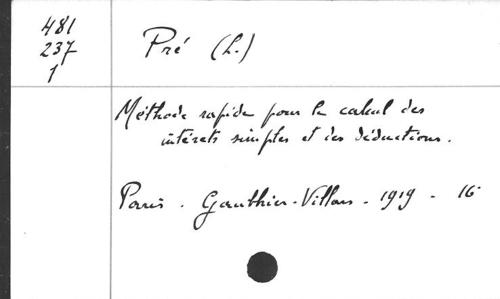 481
237
1
Pré (L.)
Méthode rapide pour le calcul des
intérêts simples et des déductions.
Paris. Gauthier-Villars - 1919 - 16